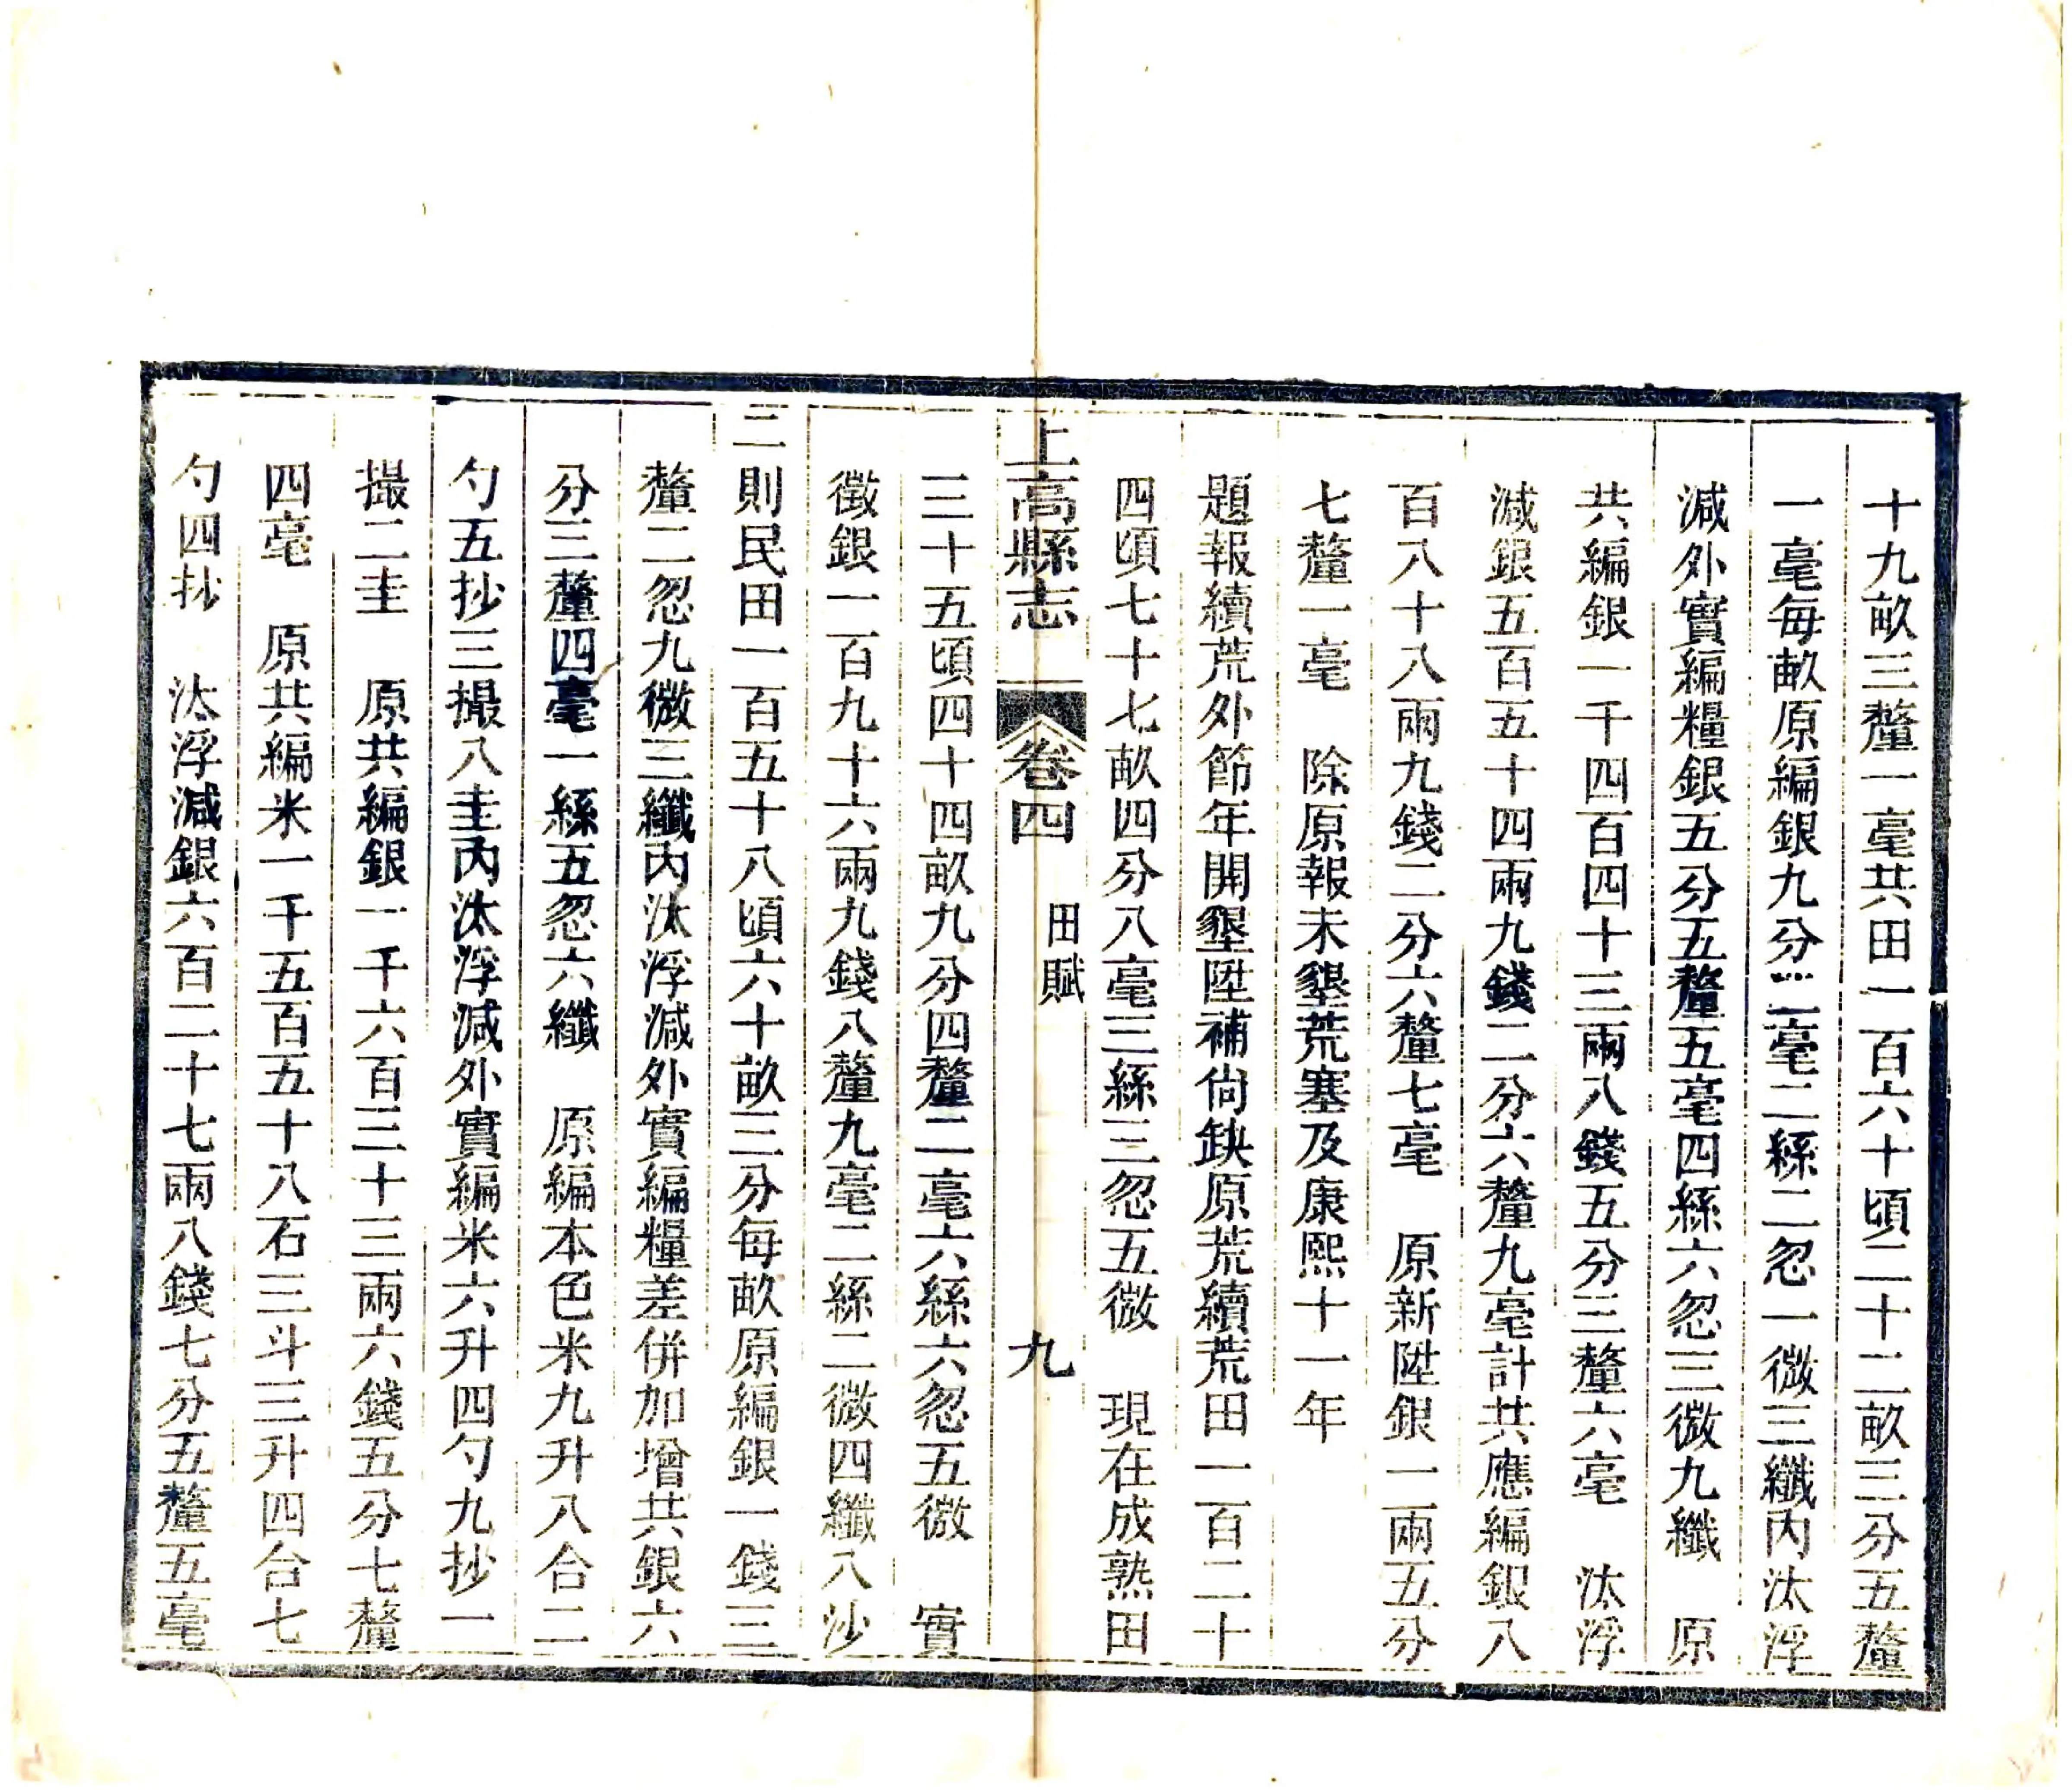 十九畝三釐一毫共田一百六十頃二十二畝三分五釐
一毫每畝原編銀九分二毫二絲二忽一微三纖內汰浮
減外實編糧銀五分五釐五毫四絲六忽三微九纖　原
共編銀一千四百四十三兩八錢五分三釐六毫　汰浮
減銀五百五十四兩九錢二分六釐九毫計共應編銀八
百八十八兩九錢二分六釐七毫　原新陞銀一兩五分
七釐一毫　除原報未墾荒塞及康熙十一年
題報續荒外節年開墾陞補尙缺原荒續荒田一百二十
四頃七十七畝四分八毫三絲三忽五微　現在成熟田
上高縣志　卷四　田賦　九
三十五頃四十四畝九分四釐二毫六絲六忽五微　實
徵銀一百九十六兩九錢八釐九毫二絲二微四纖八沙
二則民田一百五十八頃六十畝三分每畝原編銀一錢三
釐二忽九微三纖內汰浮減外實編糧差併加增共銀六
分三釐四毫一絲五忽六纖　原編本色米九升八合二
勺五抄三撮八圭內汰浮減外實編米六升四勺九抄一
撮二圭　原共編銀一千六百三十三兩六錢五分七釐
四毫　原共編米一千五百五十八石三斗三升四合七
勺四抄　汰浮減銀六百二十七兩八錢七分五釐五毫